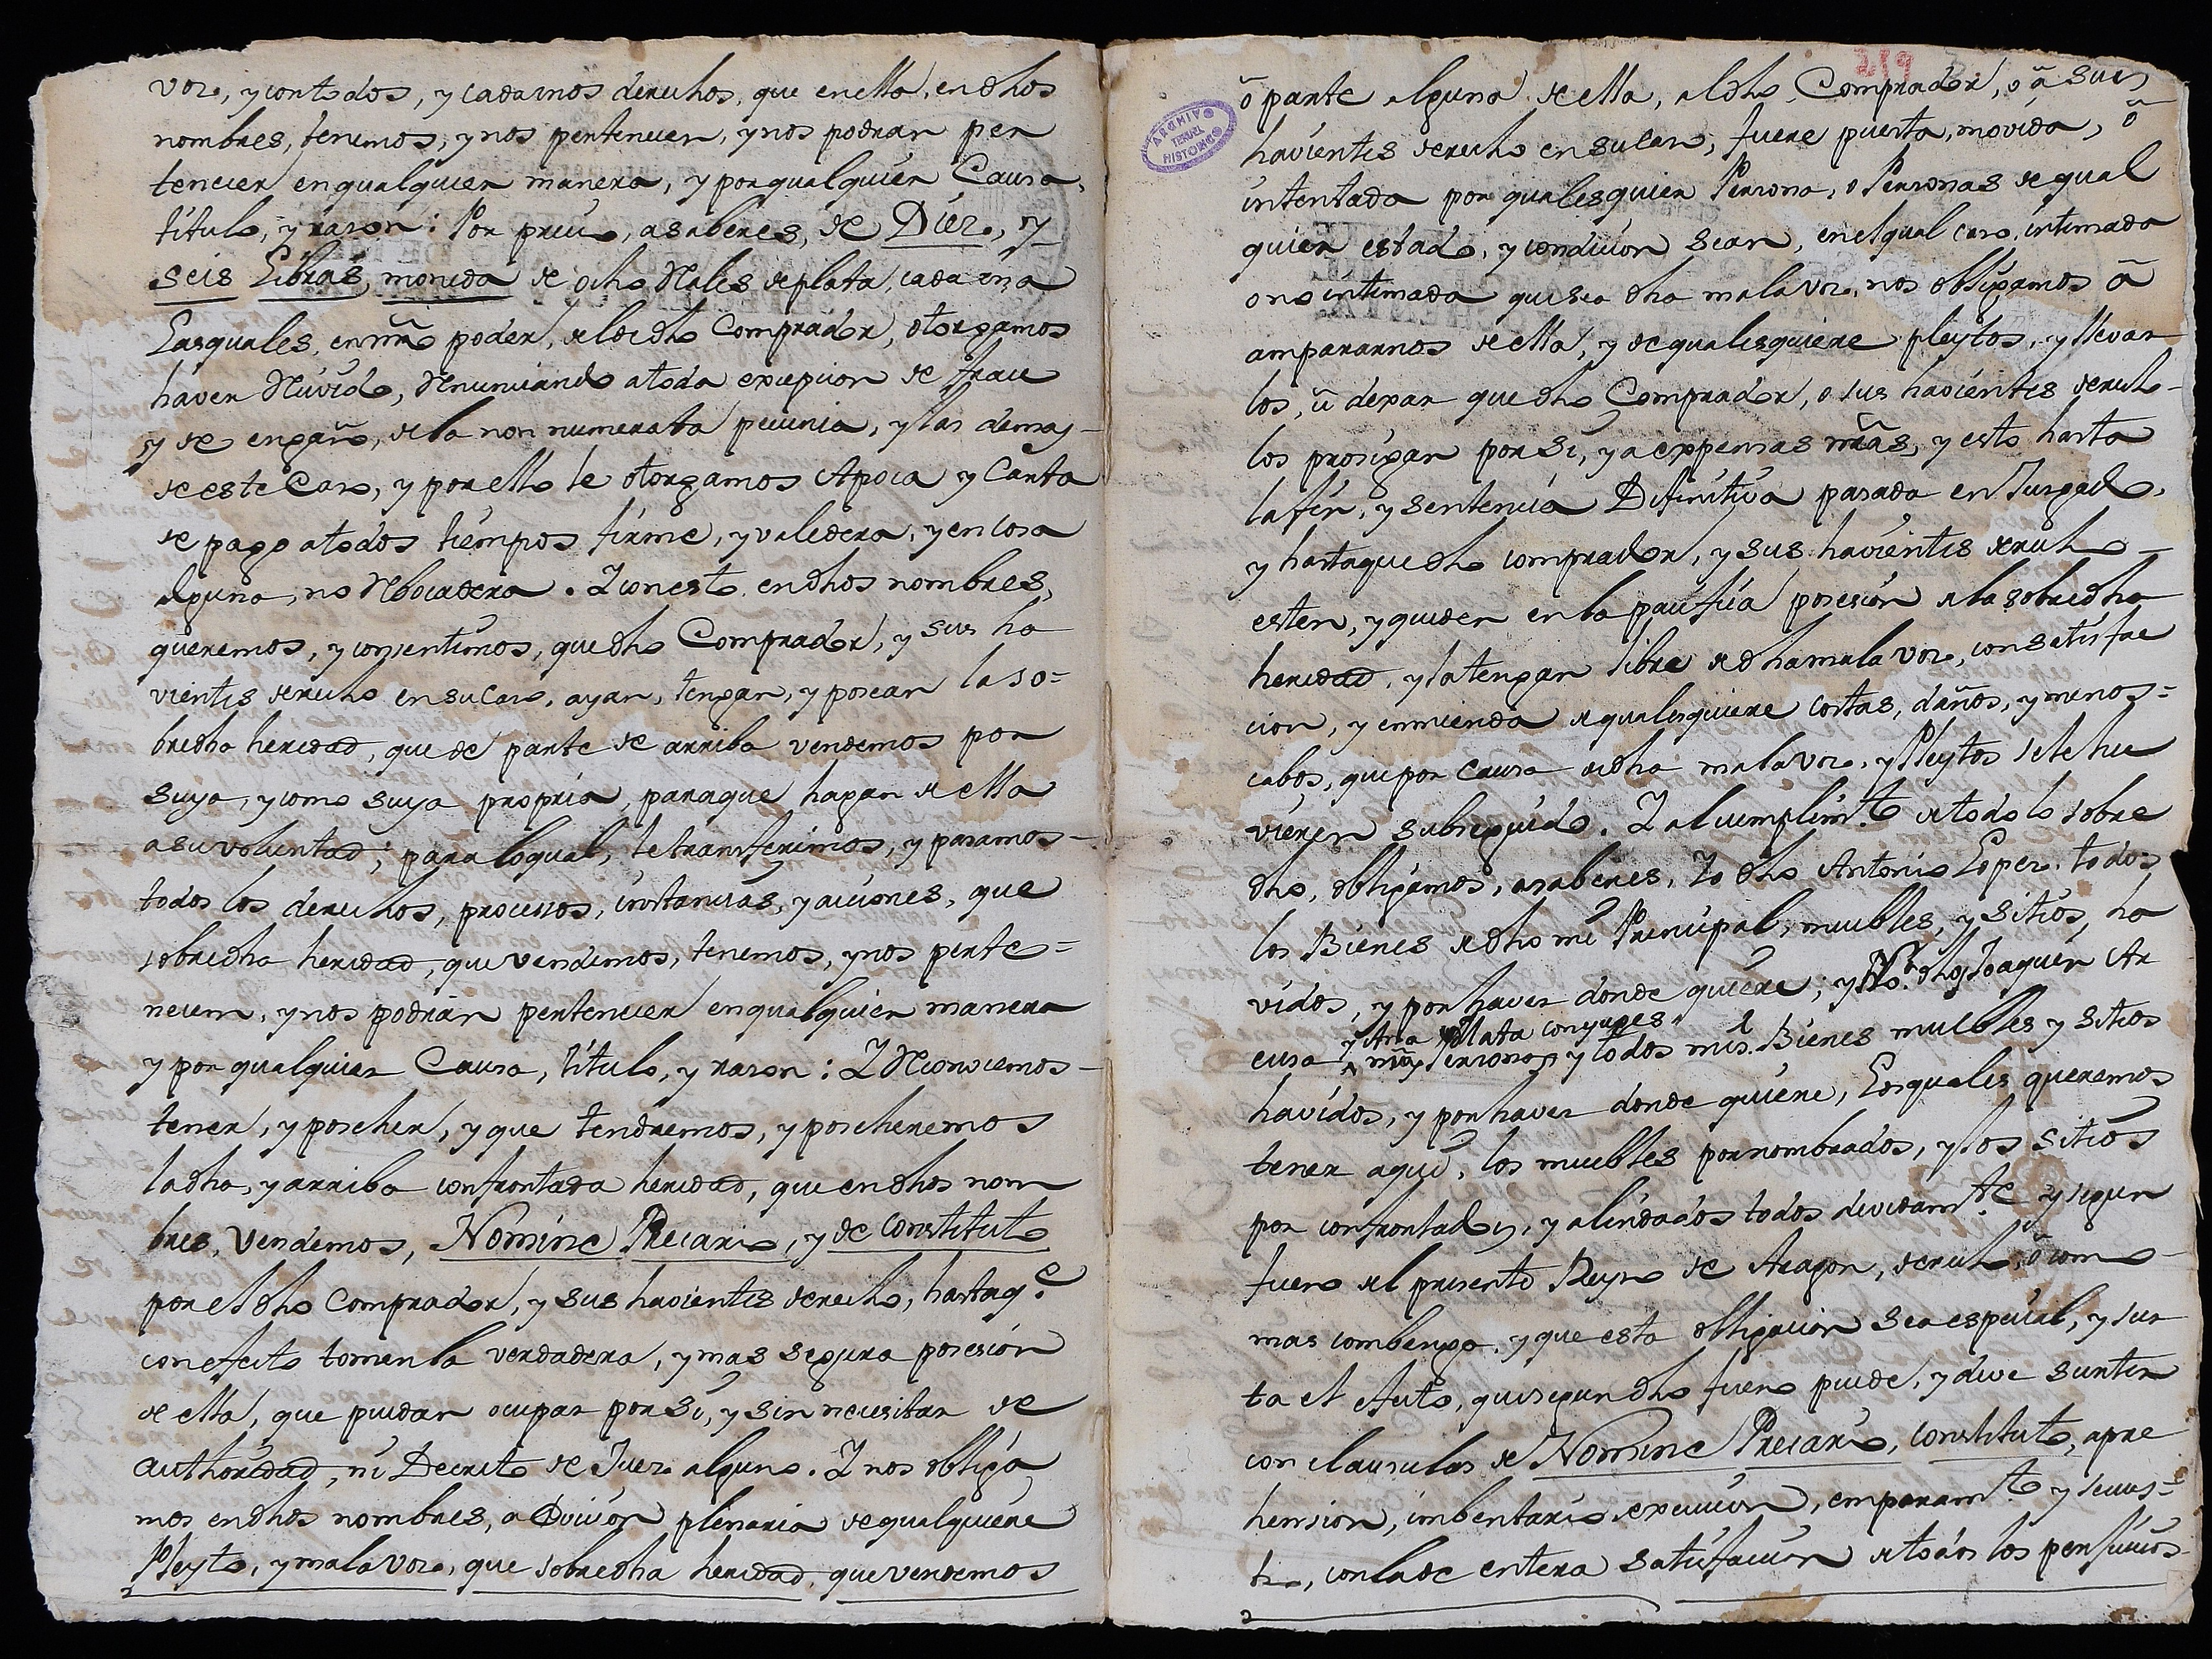 voz, y con todos, y cadaunos derechos, que en ella, en dhos
nombres, tenemos, y nos pertenecen, y nos podran per
tenecer en qualquier manera, y por qualquier Causa,
titulo, y razon: Por precio, a saber es, de Diez, y
seis Libras, moneda de ocho Reales de plata, cada una
Las quales, en nro poder, del dcho Comprador, otorgamos
haver Recivido, Renunciando a toda excepcion de frau
y de engaño, de la non numerata pecunia, y las demas
de este Caso, y por ello le otorgamos Apoca y Carta
de pago a todos tiempos firme, y valedera, y en cosa
alguna, no Rebocadera. I con esto en dhos nombres,
queremos, y consentimos, que dho Comprador, y sus ha
vientes derecho en su Caso, ayan, tengan, y posean la so=
bredha heredad, que de parte de arriba vendemos por
suya, y como suya propria, para que hagan de ella
a su voluntad; para lo qual, le transferimos, y pasamos
todos los derechos, processos, instancias, y acciones, que
sobre dha heredad, que vendemos, tenemos, y nos perte=
necen, y nos podrian pertenecer en qualquier manera
y por qualquier Causa, titulo, y razon: I Reconocemos
tener, y poseher, y que tendremos, y poseheremos
la dha, y arriba confrontada heredad, que en dhos nom
bres, vendemos, Nomine Precario, y de Constituto
por el dho Comprador, y sus havientes derecho, hasta q.e
con efecto tomen la verdadera, y mas segura posesion
de ella, que puedan ocupar por si, y sin necesitar de
authoridad, ni Decreto de Juez alguno. I nos obliga
mos en dhos nombres, a Eviccion plenaria de qualquiere
Pleyto, y mala voz, que sobre dha heredad, que vendemos
219
ARCHIVO HISTORICO TERUEL
õ parte alguna de ella, al dho Comprador, o ã sus
havientes derecho en su Caso, fuere puesta, movida, õ
intentada por qualesquier Persona, o Personas de qual
quier estado, y condicion sean, en el qual caso, intimada
o no intimada que sea dha mala voz, nos obligamos ã
ampararnos de ella, y de qualesquiere pleytos, y llevar
los, ũ dexar que dho Comprador, o sus havientes derecho
los prosigan por si, y a expensas nras, y esto hasta
la fin, y sentencia Difinitiva pasada en Juzgado,
y hasta que dho comprador, y sus havientes derecho
esten, y queden en la pacifica posesion de la sobredha
heredad, y la tengan libre de dha mala voz, con satisfac
cion, y enmienda de qualesquiere costas, daños, y menos=
cabos, que por causa de dha mala voz, y Pleytos se le hu
vieren subseguido. I al cumplim.to de todo lo sobre
dho, obligamos, a saber es, Yo dho Antonio Lopez, todos
los Bienes de dho mi Principal, muebles, y sitios, ha
vidos, y por haver donde quiere; y Nos. dhos Joaquin Ar
y Ana Mata conyuges
cusa nras Personas y todos nros Bienes muebles y sitios
havidos, y por haver donde quiere, Los quales queremos
tener aqui, los muebles por nombrados, y los sitios
por confrontados, y alindados todos devidam.te y segun
fuero del presente Reyno de Aragon, derecho, õ como
mas combenga, y que esta obligacion sea especial, y sur
ta el efecto, que segun dho fuero puede, y deve surtir
con clausulas de Nomine Precario, Constituto, apre
hension, imbentario execucion, emparam.to y secues=
tro, con la de entera satisfaccion de todos los perjuicios